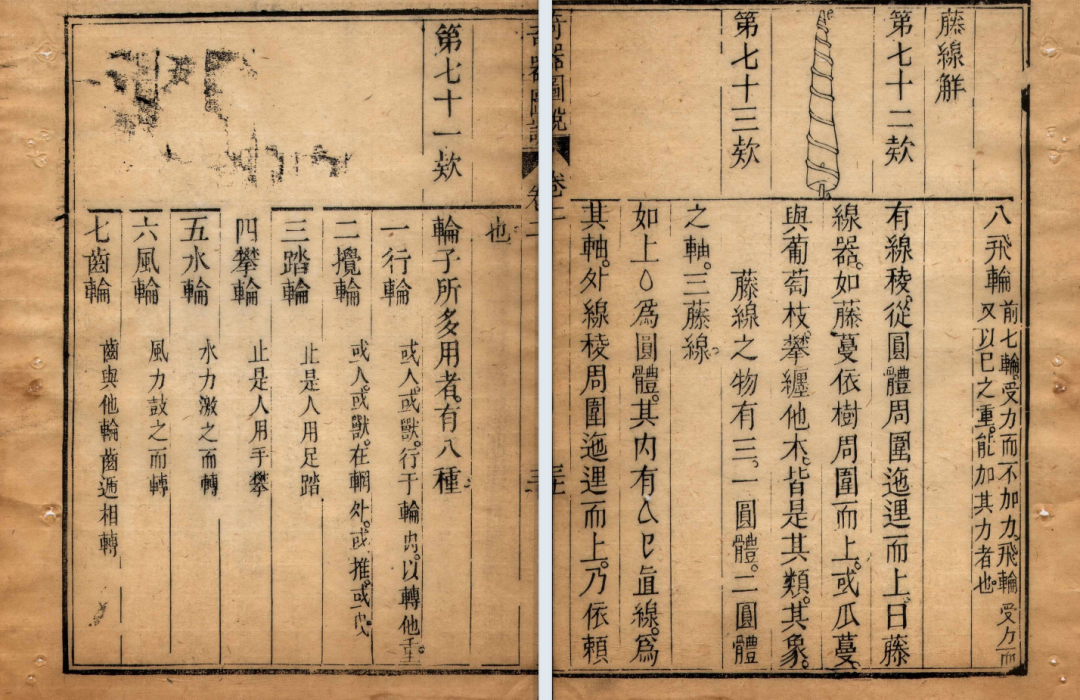 奇器圖說 卷二
也
第七十一欵
輪子所多用者。有八種。
一行輪 或人。或獸。行于輪內。以轉他重。
二攪輪 或人。或獸。在輞外。或推。或曳。
三踏輪 止是人用足踏
四攀輪 止是人用手攀
五水輪 水力激之而轉
六風輪 風力鼓之而轉
七齒輪 齒與他輪齒逓相轉
八飛輪 前七輪。受力而不加力。飛輪受力而
又以巳之重。能加其力者也。
藤線觧
第七十二欵
有線稜。從圓體周圍迤運而上。曰藤
線器。如藤蔓依樹周圍而上。或瓜蔓
與葡萄枝。攀纏他木。皆是其類。其象。
第七十三欵
藤線之物有三。一圓體。二圓體
之軸。三藤線。
如上〇爲圓體。其內有厶㔾直線。爲
其軸。外線稜周圍迤運而上。乃依賴
奇器圖說 卷二